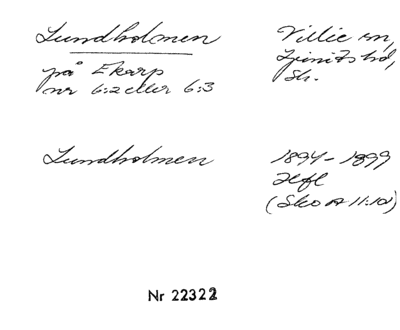 Lundholmen
Villie sn,
på Ekarp
Ljunits hd,
nr 6:2 eller 6:3
Sk.
Lundholmen
1894-1899
Hfl
(Sko A 11:10)
Nr 22322